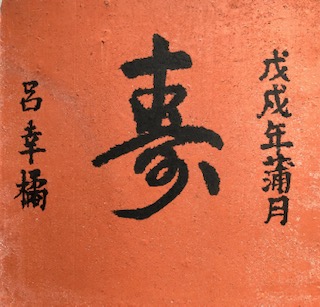 戊戌年蒲月
寿
呂幸橘